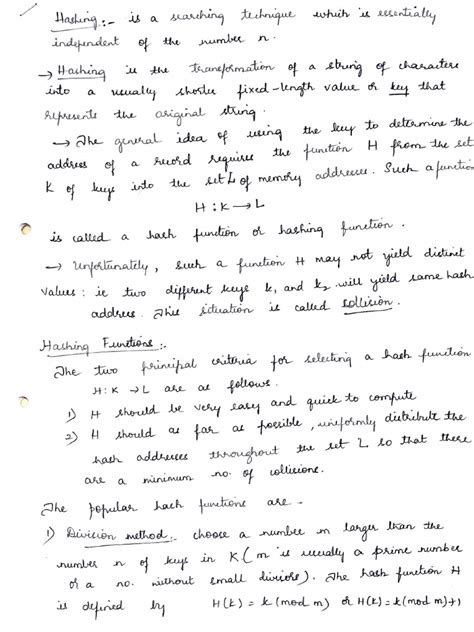 Hashing :- is a searching technique which is essentially
independent of the number n.
→ Hashing is the transformation of a string of characters
into a usually shorter fixed-length value or key that
represents the original string.
→ The general idea of using the key to determine the
address of a record requires the function H from the set
K of keys into the set L of memory addresses. Such a function
H : K → L
is called a hash function or hashing function.
→ Unfortunately, such a function H may not yield distinct
values : ie two different keys k1 and k2 will yield same hash
address. This situation is called collision.
Hashing Functions :-
The two principal criteria for selecting a hash function
H : K → L are as follows.
1) H should be very easy and quick to compute
2) H should as far as possible, uniformly distribute the
hash addresses throughout the set L so that there
are a minimum no. of collisions.
The popular hash functions are -
1) Division method :- choose a number m larger than the
number n of keys in K ( m is usually a prime number
or a no. without small divisors). The hash function H
is defined by H(k) = k (mod m) or H(k) = k (mod m)+1